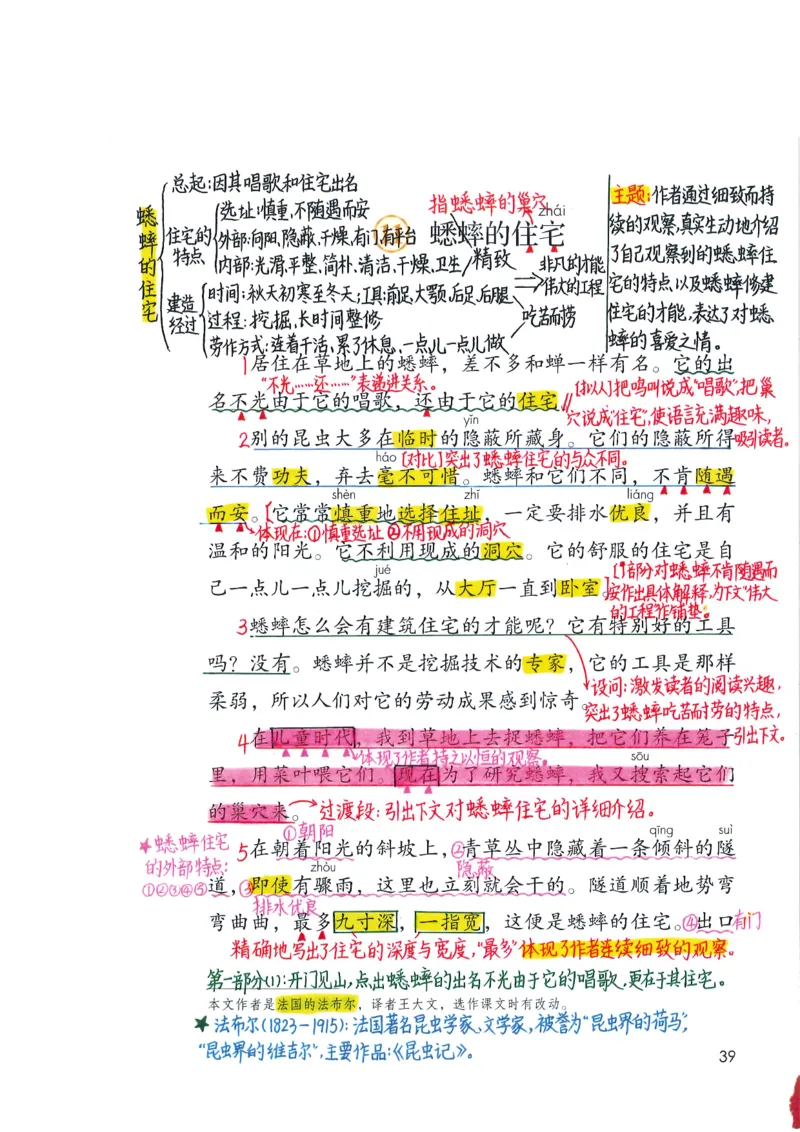 蟋蟀的住宅
总起:因其唱歌和住宅出名
住宅的特点
选址:慎重,不随遇而安
外部:向阳,隐蔽,干燥,有门有平台
内部:光滑,平整,简朴,清洁,干燥,卫生
精致
建造经过
时间:秋天初寒至冬天;工具:前足,大颚,后足,后腿
过程:挖掘,长时间整修
劳作方式:连着干活,累了休息,一点儿一点儿做
非凡的才能
伟大的工程
吃苦而劳
指蟋蟀的巢穴
zhái
11 蟋蟀的住宅
主题:作者通过细致而持
续的观察,真实生动地介绍
了自己观察到的蟋蟀住
宅的特点以及蟋蟀修建
住宅的才能,表达了对蟋
蟀的喜爱之情。
1居住在草地上的蟋蟀,差不多和蝉一样有名。它的出
“不光……还……”表递进关系。
名不光由于它的唱歌,还由于它的住宅。
[拟人]把鸣叫说成“唱歌”,把巢
穴说成“住宅”,使语言充满趣味,
吸引读者。
yǐn
2别的昆虫大多在临时的隐蔽所藏身。它们的隐蔽所得
háo
[对比]突出了蟋蟀住宅的与众不同。
来不费功夫,弃去毫不可惜。蟋蟀和它们不同,不肯随遇
shèn zhǐ liáng
而安。[它常常慎重地选择住址,一定要排水优良,并且有
体现在:①慎重选址 ②不用现成的洞穴
温和的阳光。它不利用现成的洞穴。它的舒服的住宅是自
jué
己一点儿一点儿挖掘的,从大厅一直到卧室。]
部分对蟋蟀不肯随遇而
安作出具体解释,为下文“伟大
的工程”作铺垫。
3蟋蟀怎么会有建筑住宅的才能呢?它有特别好的工具
吗?没有。蟋蟀并不是挖掘技术的专家,它的工具是那样
柔弱,所以人们对它的劳动成果感到惊奇。
设问:激发读者的阅读兴趣,
突出了蟋蟀吃苦耐劳的特点,
引出下文。
4在儿童时代,我到草地上去捉蟋蟀,把它们养在笼子
体现了作者持之以恒的观察。
sōu
里,用菜叶喂它们。现在为了研究蟋蟀,我又搜索起它们
的巢穴来。
过渡段:引出下文对蟋蟀住宅的详细介绍。
★蟋蟀住宅
的外部特点:
①②③④⑤
①朝阳
qīng suì
5在朝着阳光的斜坡上,②青草丛中隐藏着一条倾斜的隧
zhòu
隐蔽
道,③即使有骤雨,这里也立刻就会干的。隧道顺着地势弯
排水优良
弯曲曲,最多九寸深,一指宽,这便是蟋蟀的住宅。④出口
有门
精确地写出了住宅的深度与宽度,“最多”体现了作者连续细致的观察。
第一部分(1):开门见山,点出蟋蟀的出名不光由于它的唱歌,更在于其住宅。
本文作者是法国的法布尔,译者王大文,选作课文时有改动。
★法布尔(1823-1915):法国著名昆虫学家、文学家,被誉为“昆虫界的荷马”,
“昆虫界的维吉尔”,主要作品:《昆虫记》。
39